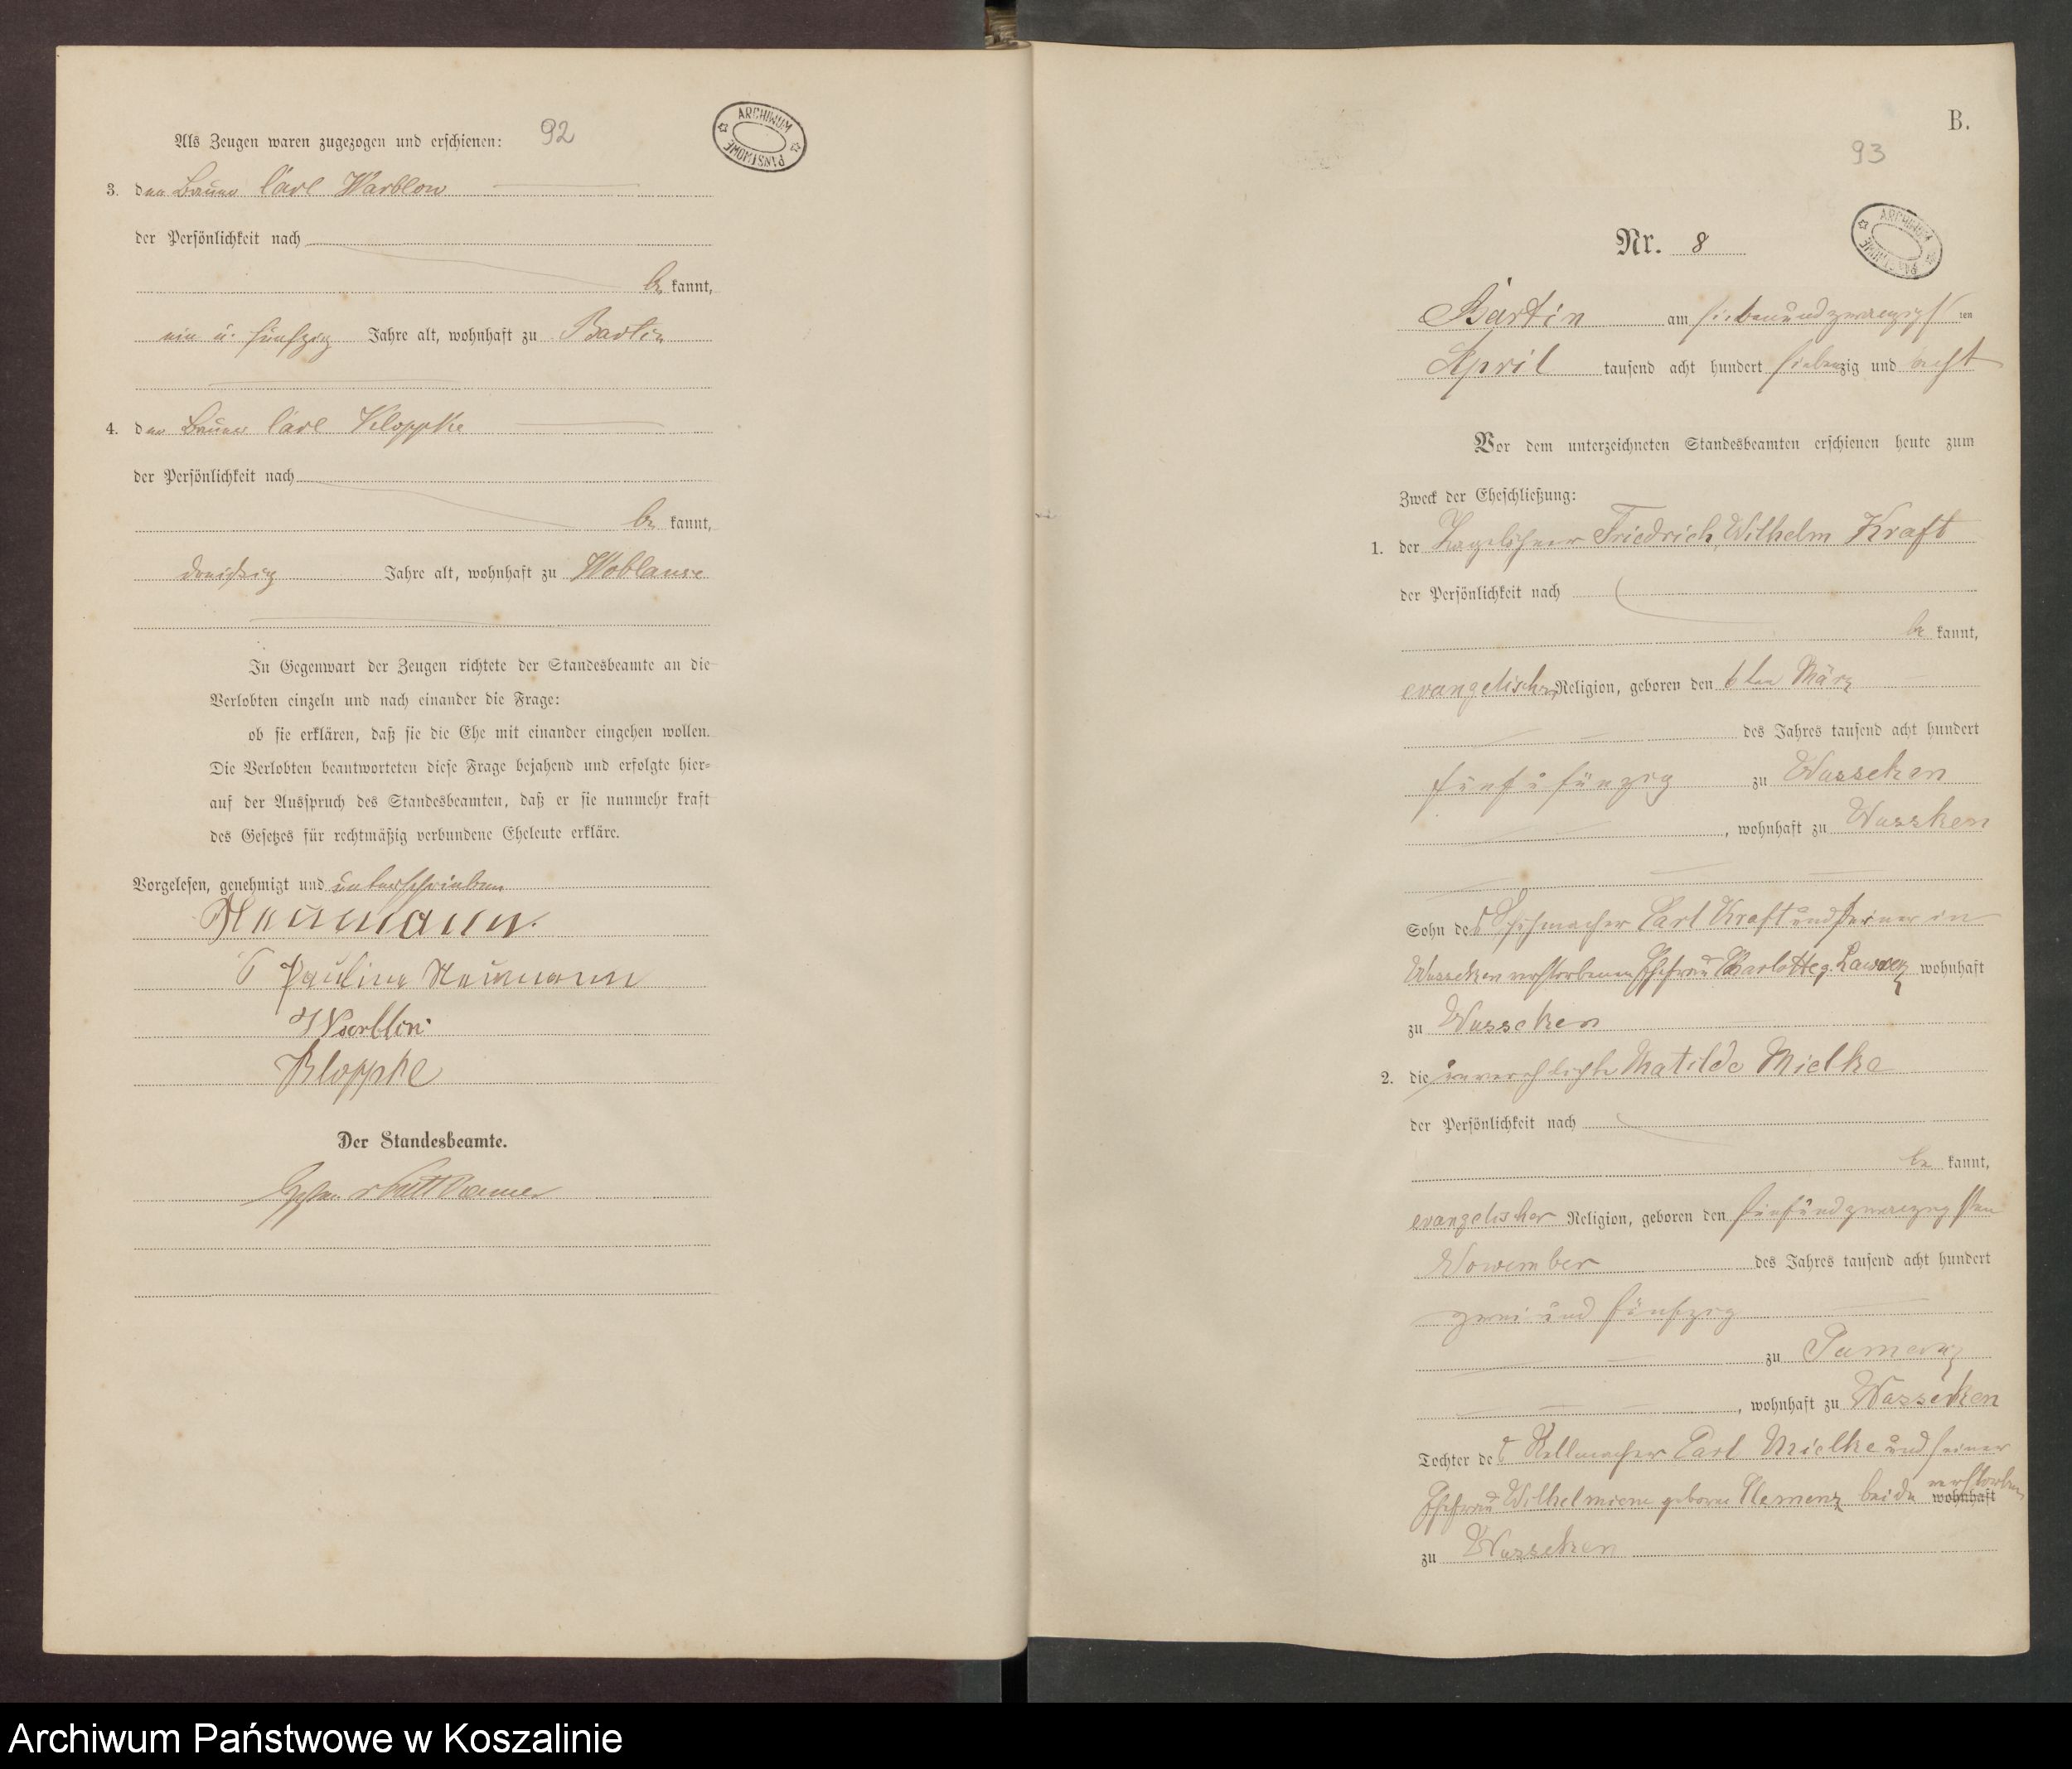 92
ARCHIWUM PAŃSTWOWE
Als Zeugen waren zugezogen und erschienen:
3. der Bauer Carl Warblow
der Persönlichkeit nach
be kannt,
ein u. fünfzig Jahre alt, wohnhaft zu Bartin
4. der Bauer Carl Kloppke
der Persönlichkeit nach
be kannt,
dreißig Jahre alt, wohnhaft zu Woblanse
In Gegenwart der Zeugen richtete der Standesbeamte an die
Verlobten einzeln und nach einander die Frage:
ob sie erklären, daß sie die Ehe mit einander eingehen wollen.
Die Verlobten beantworteten diese Frage bejahend und erfolgte hier-
auf der Ausspruch des Standesbeamten, daß er sie nunmehr kraft
des Gesetzes für rechtmäßig verbundene Eheleute erkläre.
Vorgelesen, genehmigt und unterschrieben
Neumann.
Pauline Neumann
Warblow
Kloppke
Der Standesbeamte.
B.
93
ARCHIWUM PAŃSTWOWE
Nr. 8
Bartin am siebenundzwanzigsten
April tausend acht hundert siebenzig und acht
Vor dem unterzeichneten Standesbeamten erschienen heute zum
Zweck der Eheschließung:
1. der Tagelöhner Friedrich Wilhelm Kraft
der Persönlichkeit nach
be kannt,
evangelischer Religion, geboren den 6ten März
des Jahres tausend acht hundert
fünf u fünzig zu Wusseken
, wohnhaft zu Wussken
Sohn des Carl Kraft und seiner in
Wusseken verstorbenen Ehefrau Charlotte g. wohnhaft
zu Wusseken
2. die unverehlichte Matilde Mielke
der Persönlichkeit nach
be kannt,
evangelischer Religion, geboren den fünfundzwanzigsten
Nowember des Jahres tausend acht hundert
zwei und fünfzig
zu
, wohnhaft zu Wusseken
Tochter des Stellmacher Carl Mielke und seiner
Ehefrau Wilhelmiene geborne Clemenz beide verstorben wohnhaft
zu Wusseken
Archiwum Państwowe w Koszalinie